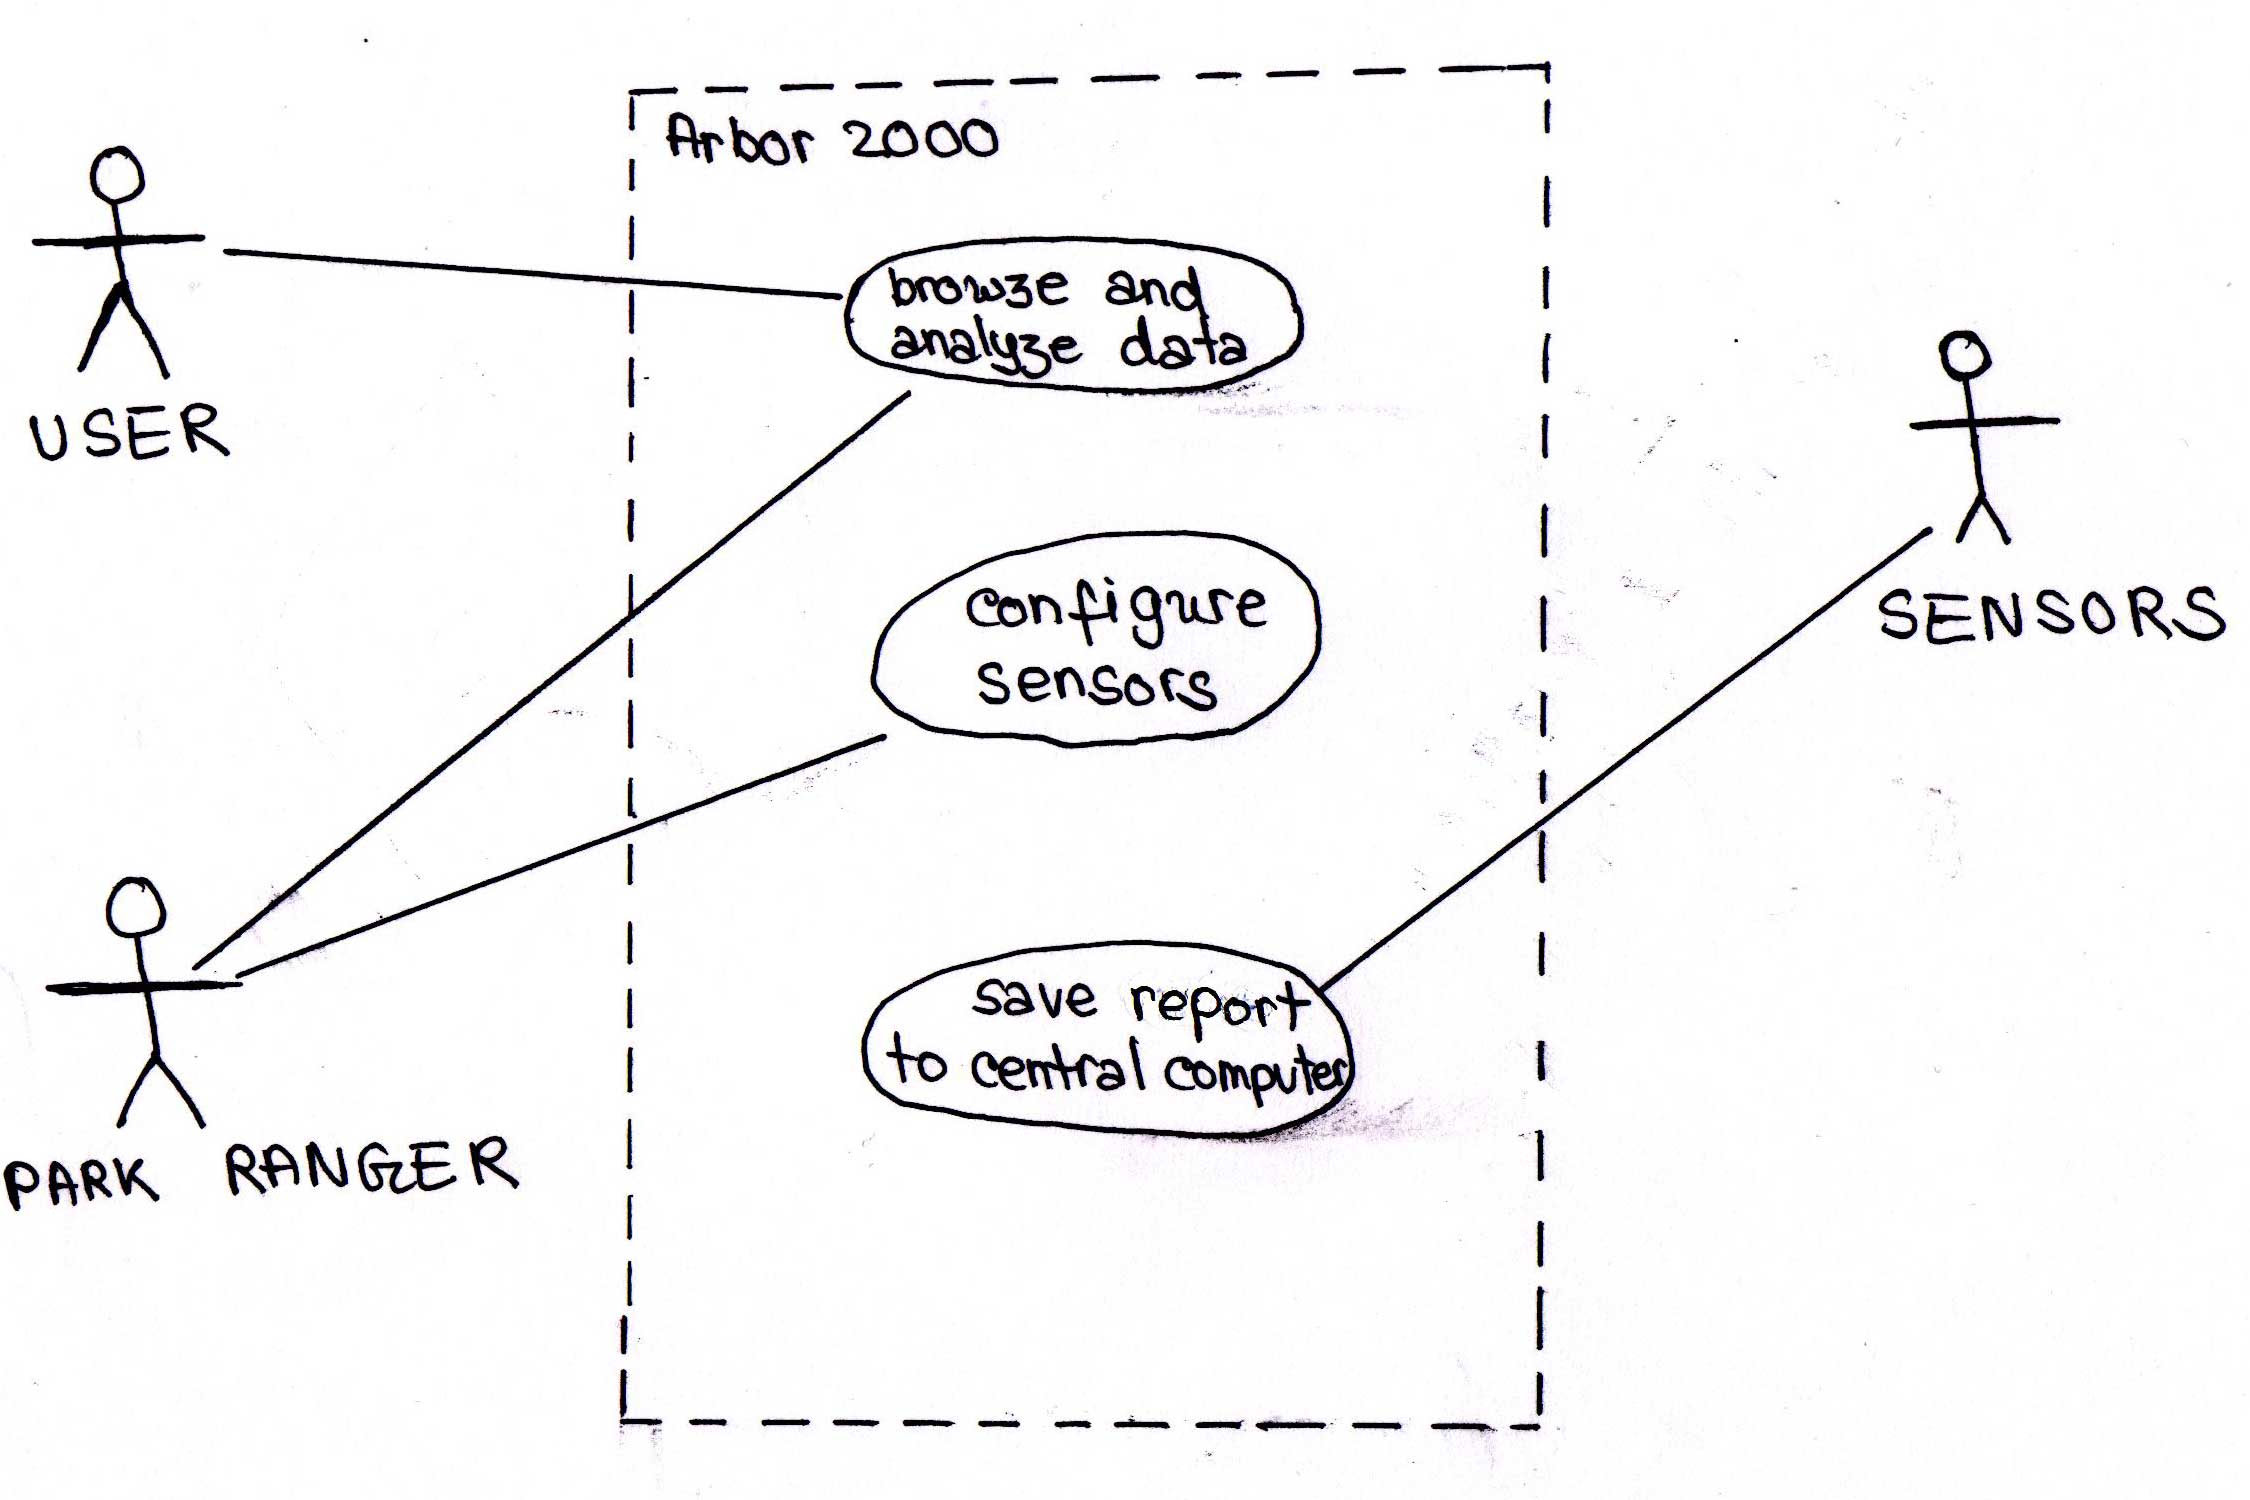 Arbor 2000
USER
browze and
analyze data
configure
sensors
SENSORS
save report
to central computer
PARK RANGER